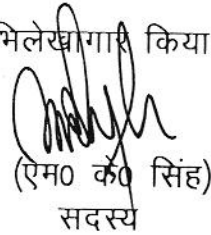 भिलेखीगार किया
(एम0 के0 सिंह)
सदस्य